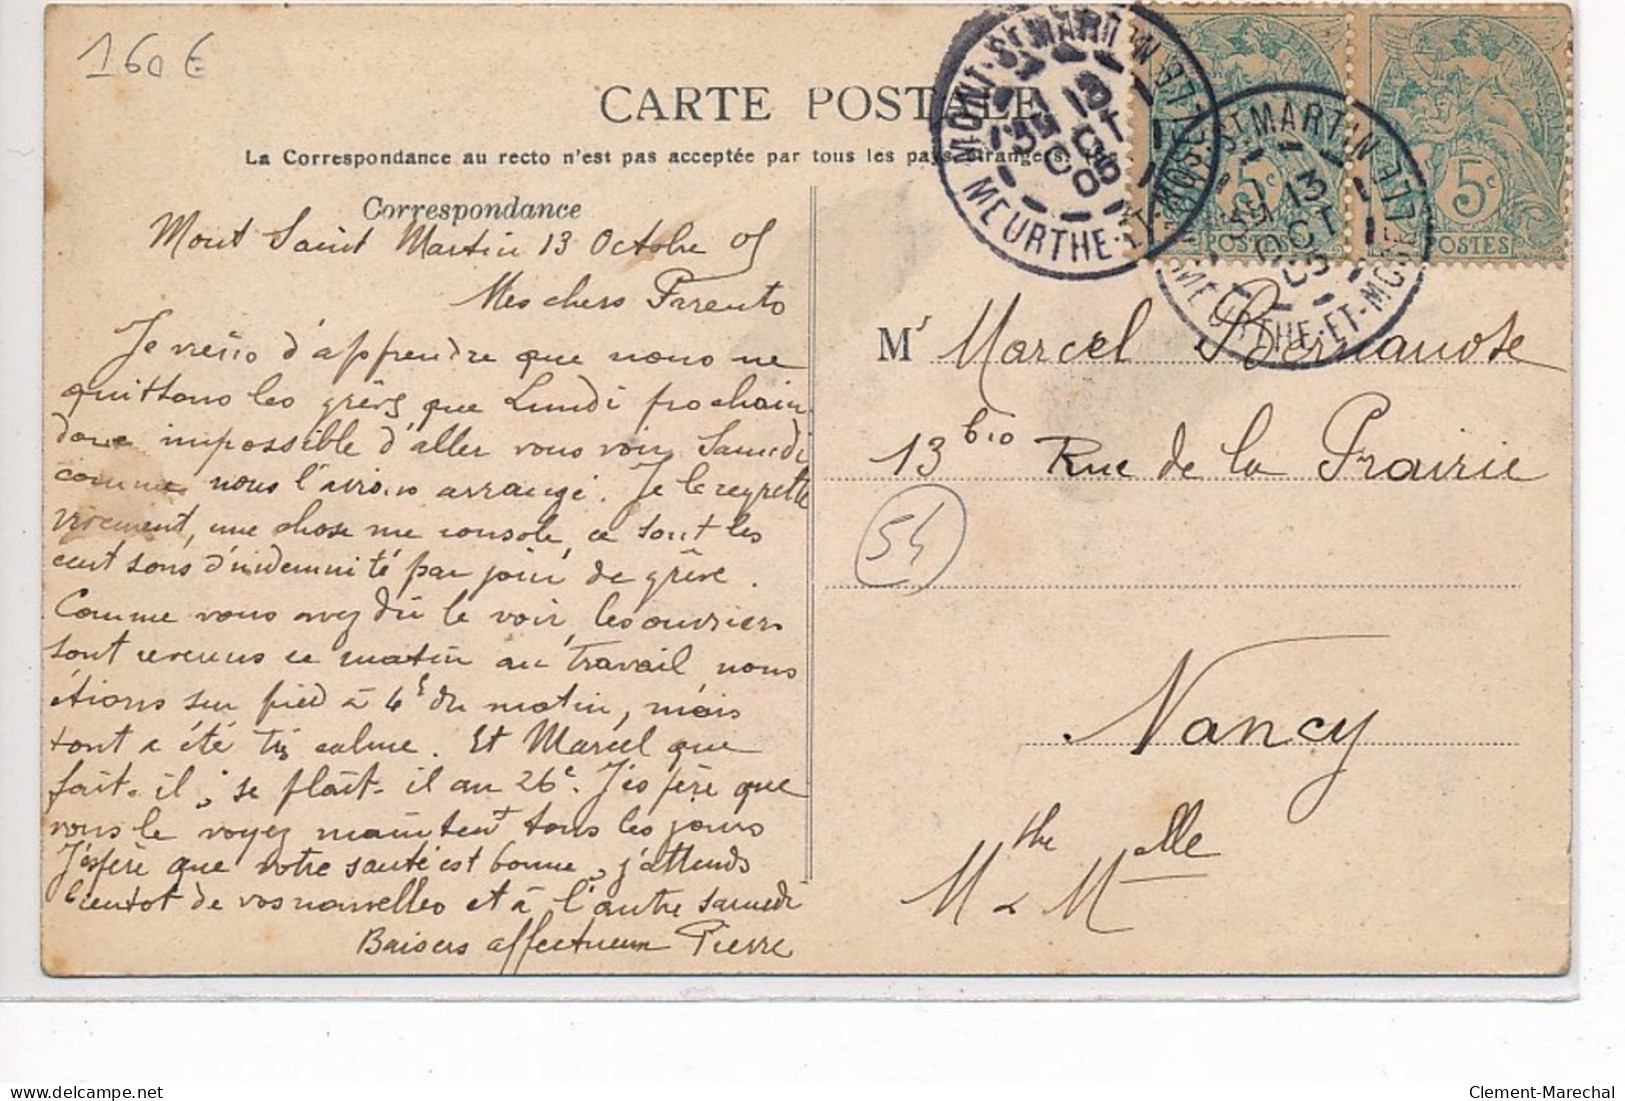 160 €
CARTE POSTALE
La Correspondance au recto n'est pas acceptée par tous les pays étrangers.
Correspondance
Mont Saint Martin 13 Octobre 05
Mes chers Parents
Je viens d'apprendre que nous ne
quittons les grèves que Lundi prochain
donc impossible d'aller vous voir Samedi
comme nous l'avions arrangé. Je le regrette
vivement, une chose me console, ce sont les
cent sous d'indemnité par jour de grève.
Comme vous avez dû le voir, les ouvriers
sont revenus ce matin au travail, nous
étions sur pied à 4h du matin, mais
tout a été très calme. Et Marcel que
fait-il, se plaît-il au 26e. J'espère que
vous le voyez maintent tous les jours
J'espère que votre santé est bonne, j'attends
bientot de vos nouvelles et à l'autre samedi
Baisers affectueux Pierre
MONT-ST-MARTIN
MEURTHE-ET-MOSELLE
13 OCT 05
ST MARTIN
MEURTHE-ET-MOSELLE
13 OCT 05
5c
POSTES
5c
POSTES
Mr Marcel Bernanose
13 bis Rue de la Prairie
54
Nancy
Mthe & Melle
www.delcampe.net
Clement-Marechal